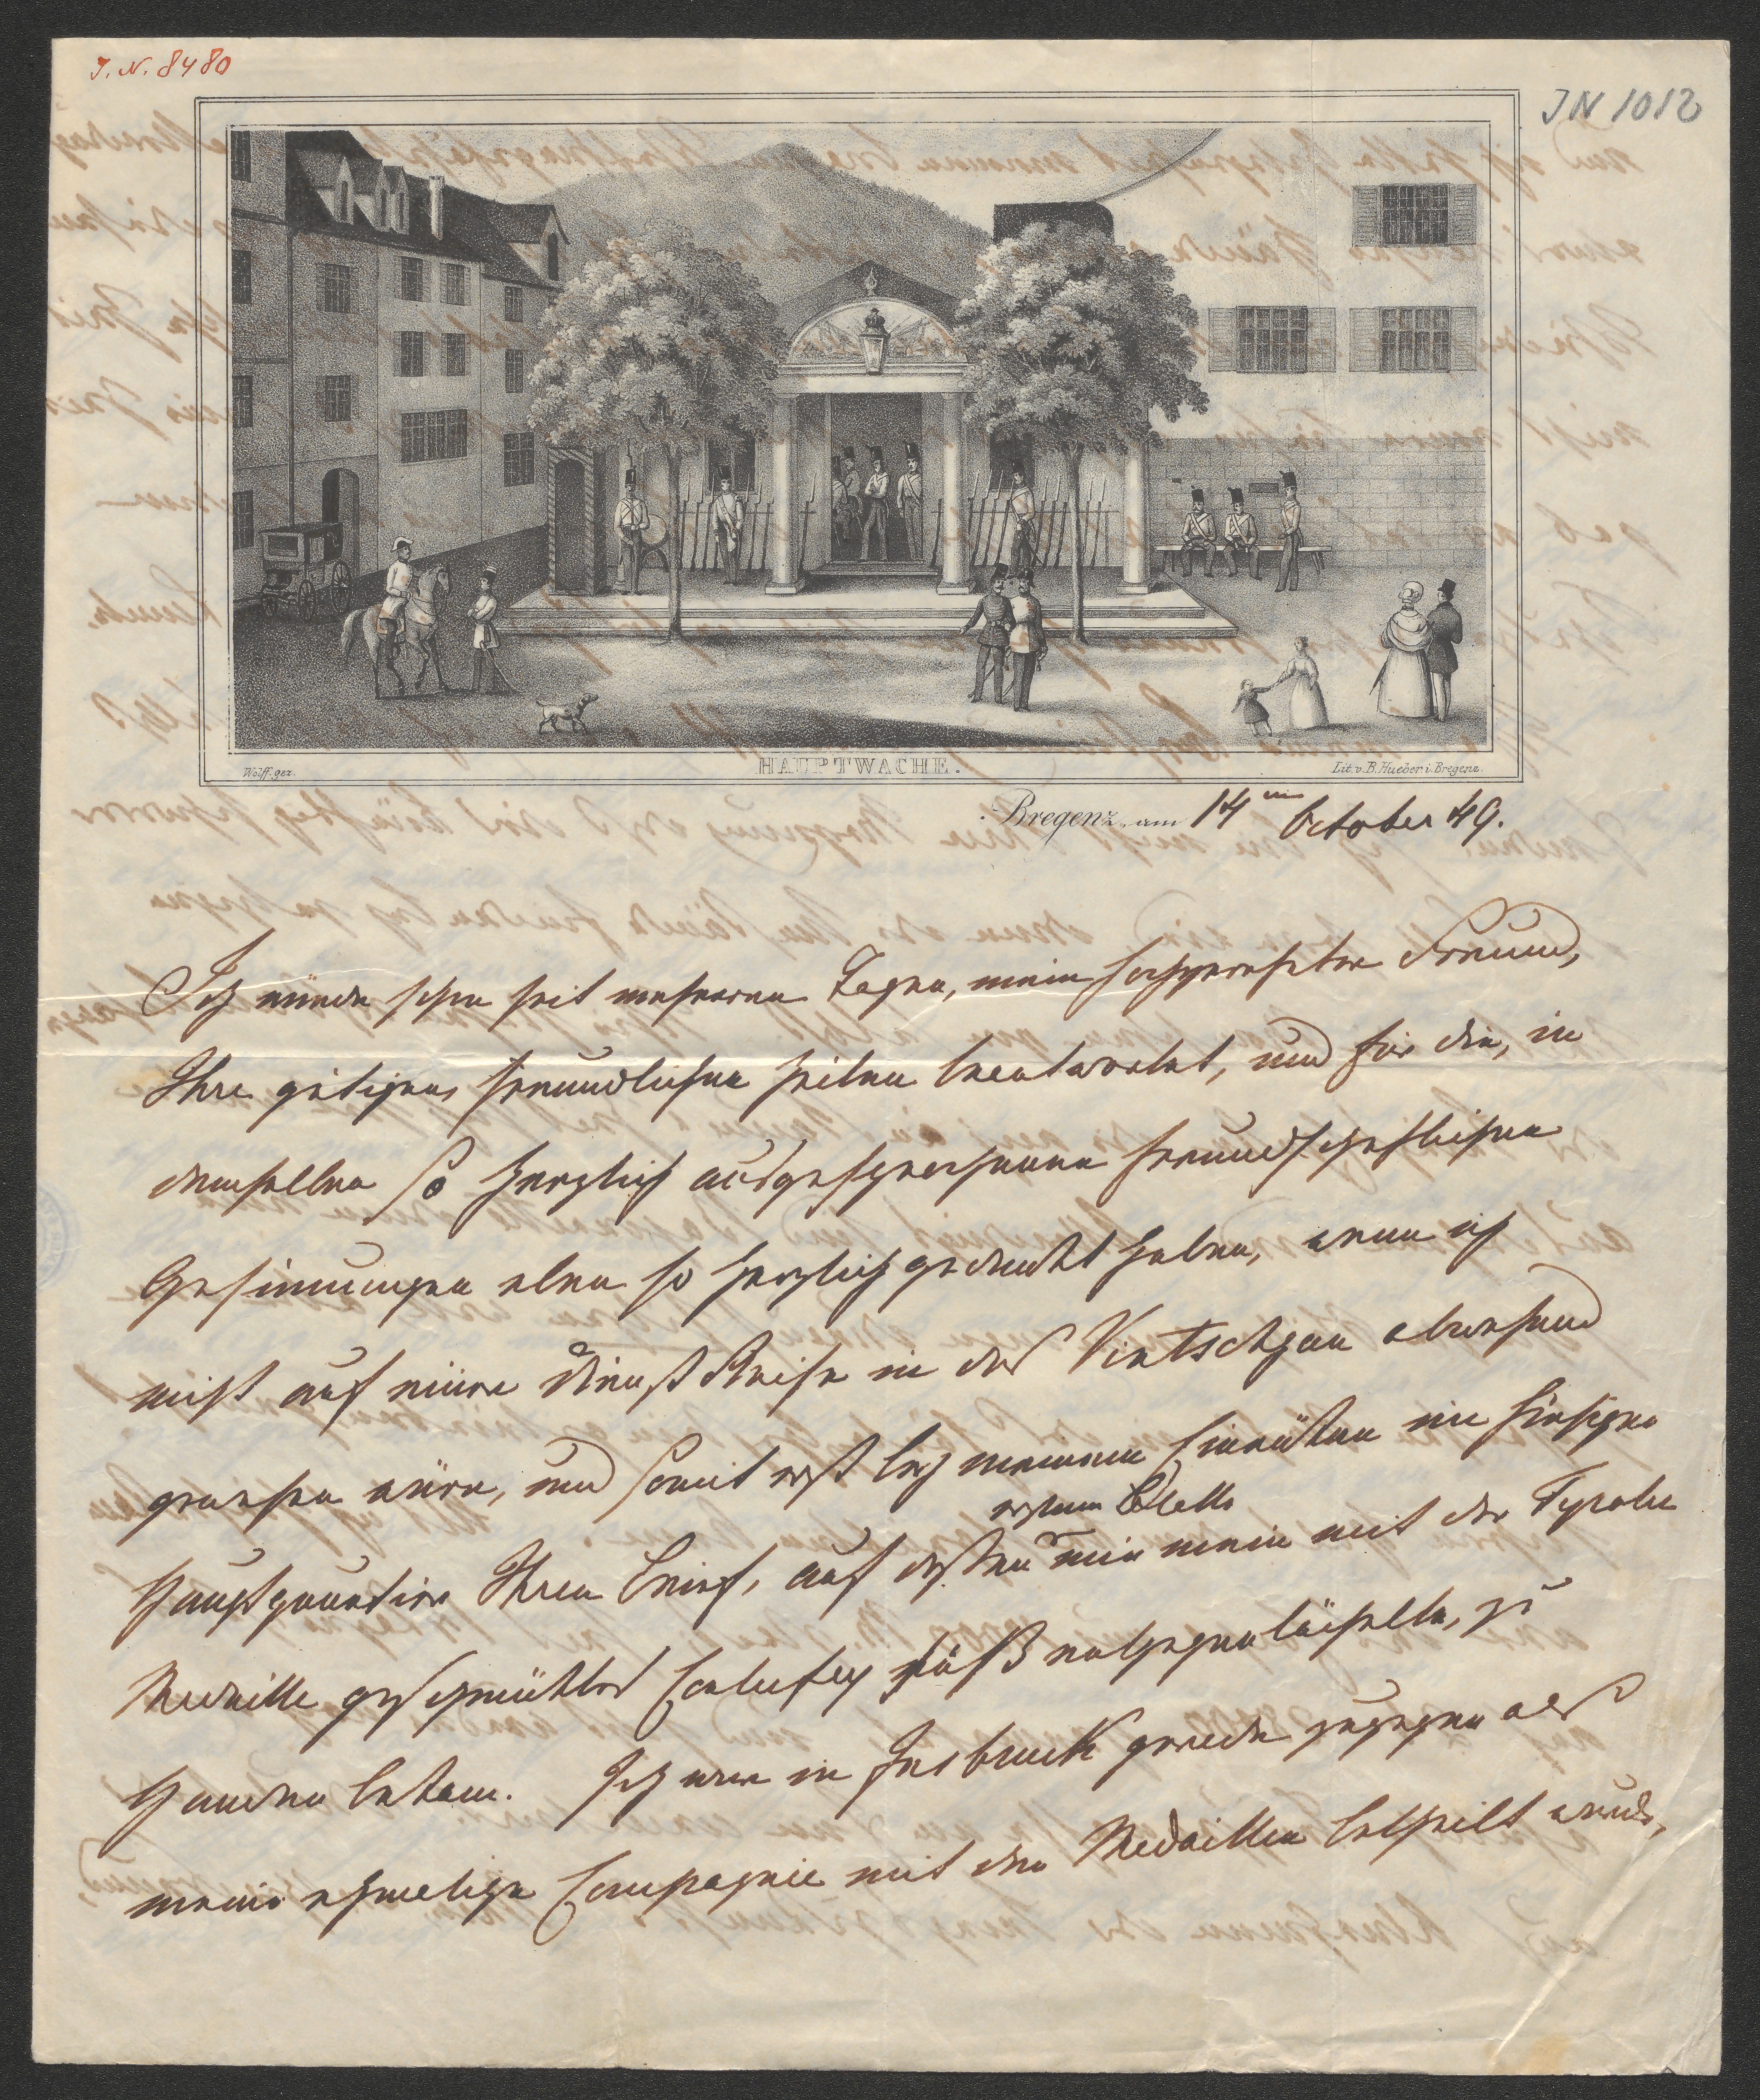 I. N. 8480
IN 1012
Wolff. gez.
HAUPTWACHE.
Lit. v. B. Hueber i. Bregenz.
Bregenz, am 14ten October 49.
Ich würde schon seit mehreren Tagen, mein hochgeehrter Freund,
Ihre gütigen, freundlichen Zeilen beantwortet, und für die, in
denselben so herzlich ausgesprochenen freundschaftlichen
Gesinnungen eben so herzlich gedankt haben, wenn ich
nicht auf einer Dienst Reise in das Vintschgau abwesend
gewesen wäre, und somit erst bey meinem Einrücken im hiesigen
Hauptquartier Ihren Brief, auf dessen
erstem Blatte
mir mein mit der Tyroler
Medaille geschmücktes süß entgegenlächelte, zu
Handen bekam. Ich war in Insbruck gerade zugegen als
meine ehmalige Compagnie mit den Medaillen betheilt wurde,